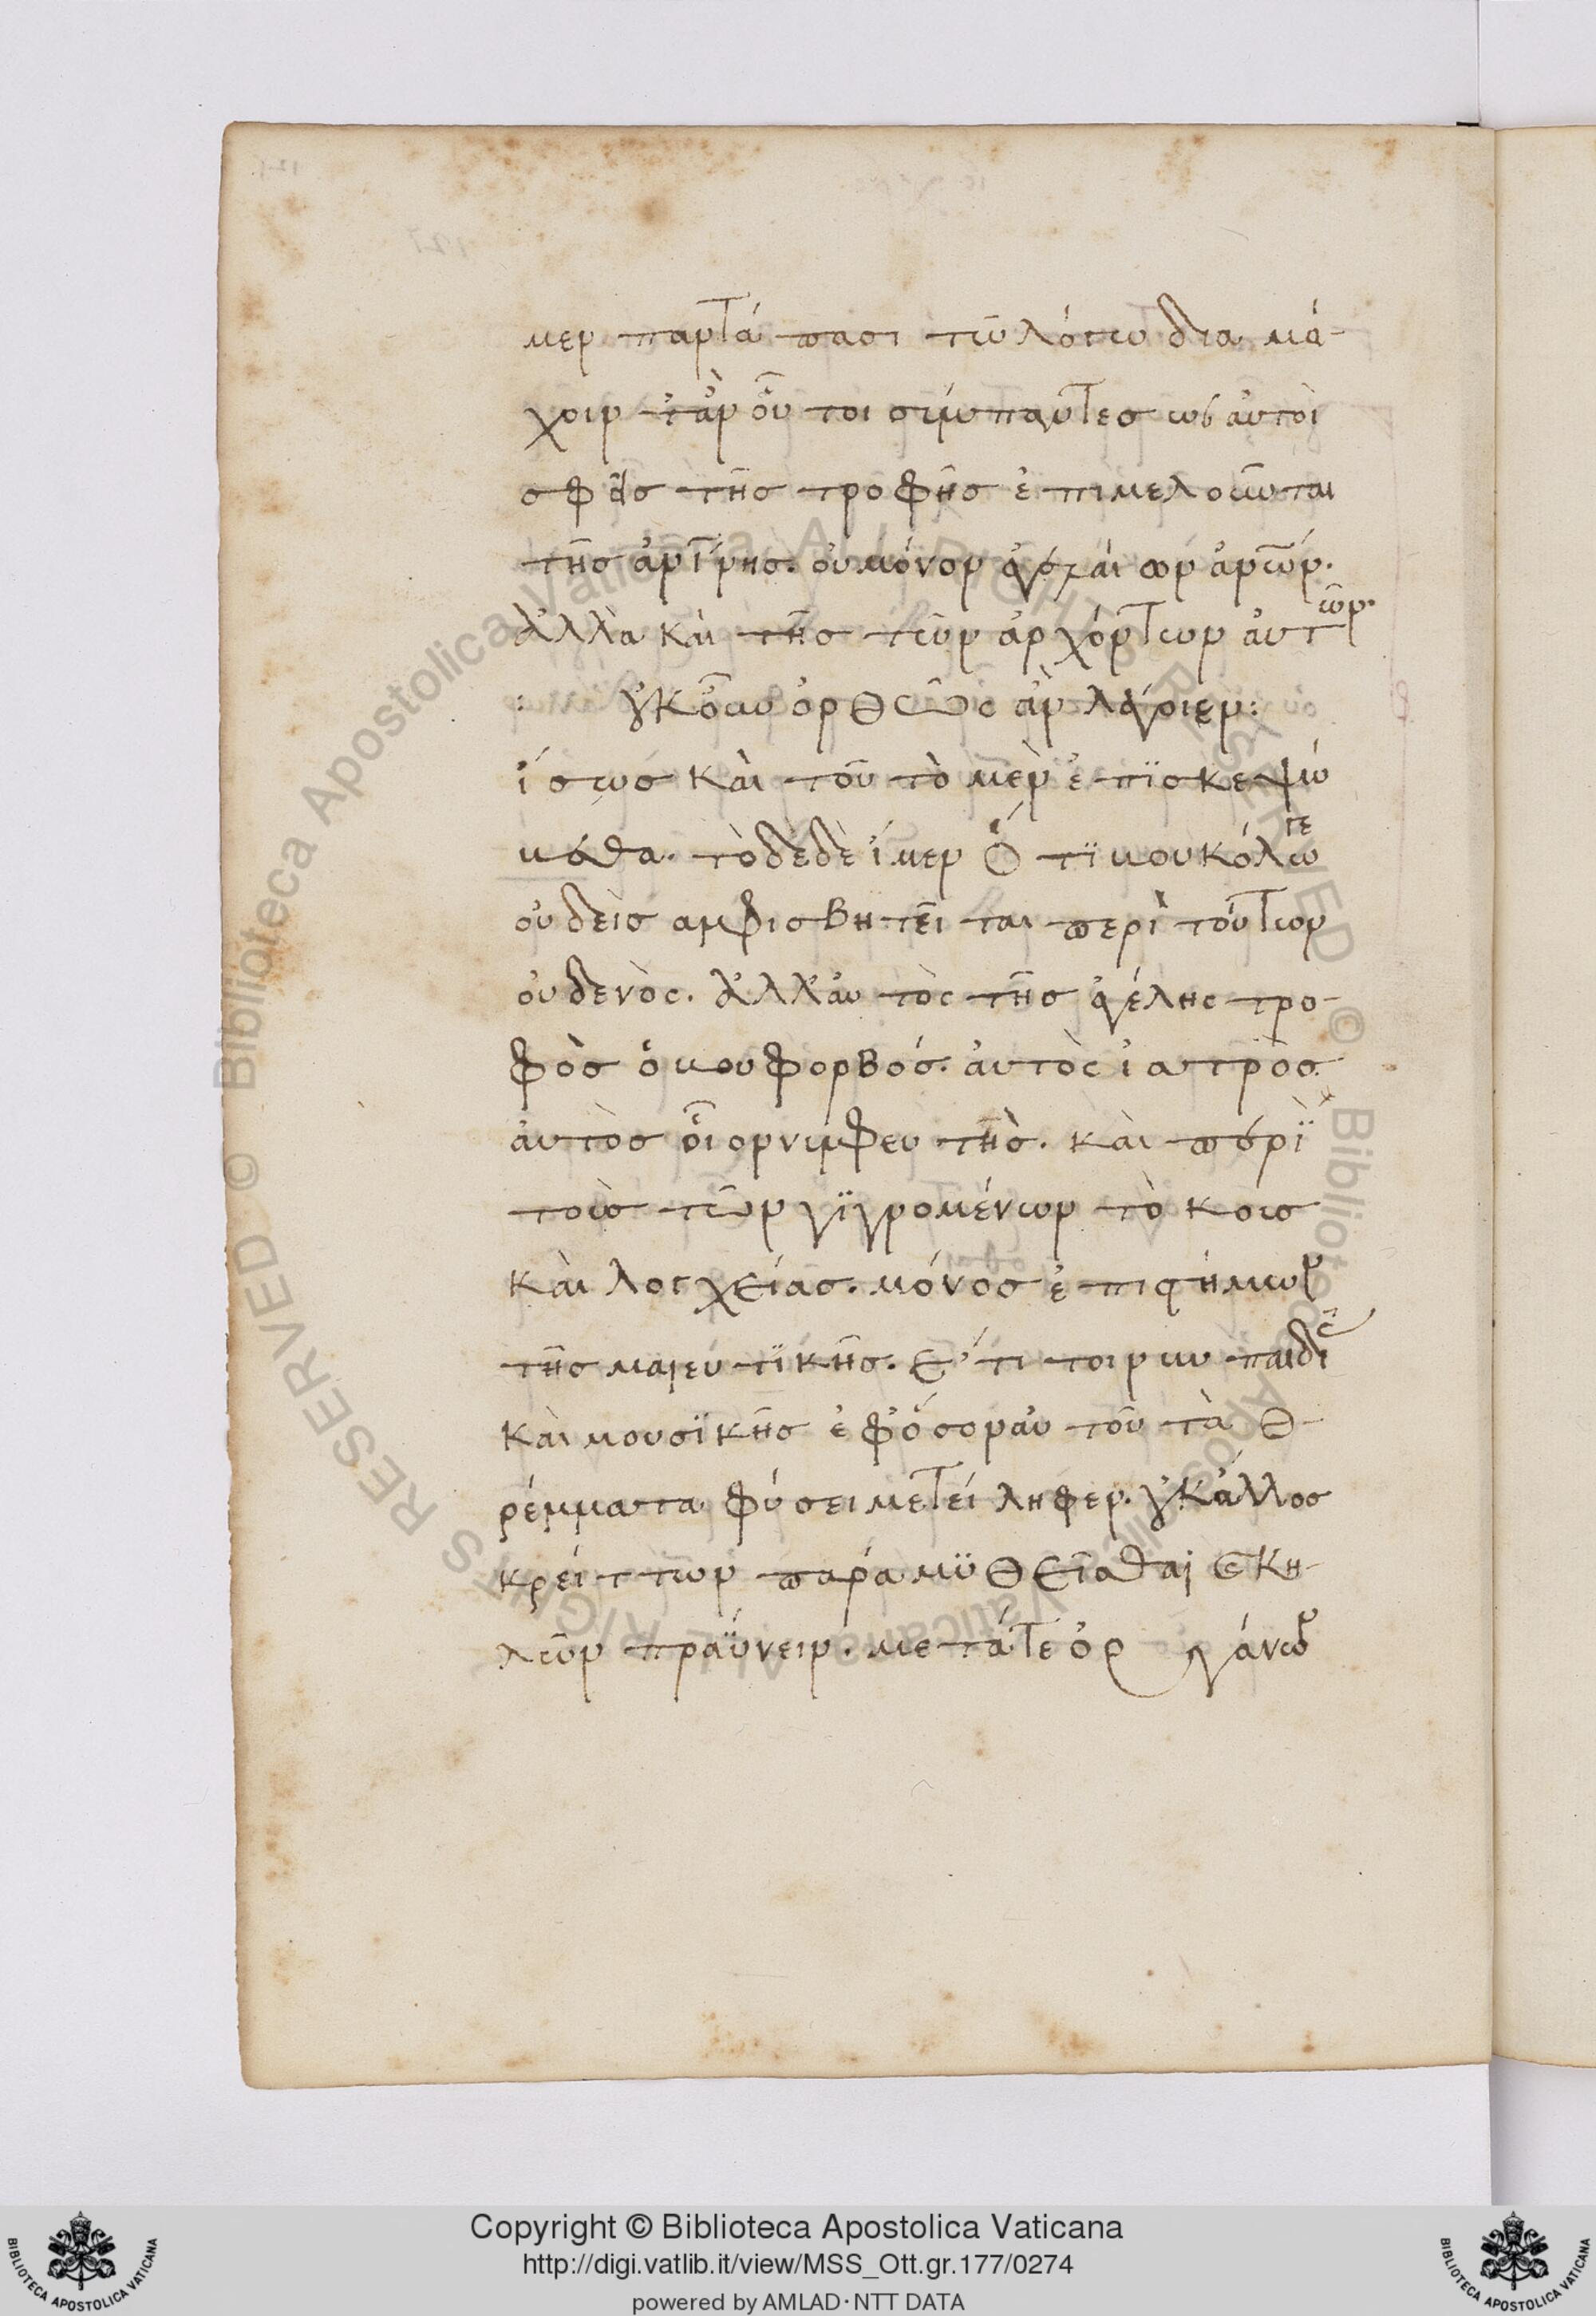 μεν παντάπασι τῶ λόγω διαμά-
χοιντ' ἂν οὗτοι σύμπαντες ὡς αὐτοὶ
σφᾶς τῆς τροφῆς ἐπιμελοῦνται
τῆς ἀνθίνης. οὐ μόνον ἀγελαίων ἀνῶν.
ἀλλὰ καὶ τῆς τῶν ἀρχόντων αὐτῶν.
: οὐκοῦν ὀρθῶς ἂν λέγοιεν:
ἴσως καὶ τοῦτο μὲν ἐπισκεψώ
μεθα. τὸ δὲ δὲ ἴμεν ὅτι βουκόλω γε
οὐδεὶς αμφισβητεῖται περὶ τούτων
οὐδενὸς. ἀλλ' αυτὸς τῆς ἀγέλης τρο-
φὸς ὁ βουφορβός. αὐτὸς ἰατρὸς
αὐτὸς οἷον νυμφευτὴς. καὶ περὶ
τοὺς τῶν γιγνομένων τόκους
καὶ λοχείας. μόνος ἐπιστήμων
τῆς μαιευτικῆς. ἔτι τοινυν παιδιᾶς
καὶ μουσικῆς ἐφόσον αὐτοῦ τὰ θ-
ρέμματα φύσει μετείληφεν. οὐκ ἄλλος
κρείττων παραμυθεῖσθαι καὶ κη-
λῶν πραΰνειν. μετά τε ὀργάνων
Copyright © Biblioteca Apostolica Vaticana
http://digi.vatlib.it/view/MSS_Ott.gr.177/0274
powered by AMLAD·NTT DATA
BIBLIOTECA APOSTOLICA VATICANA
BIBLIOTECA APOSTOLICA VATICANA